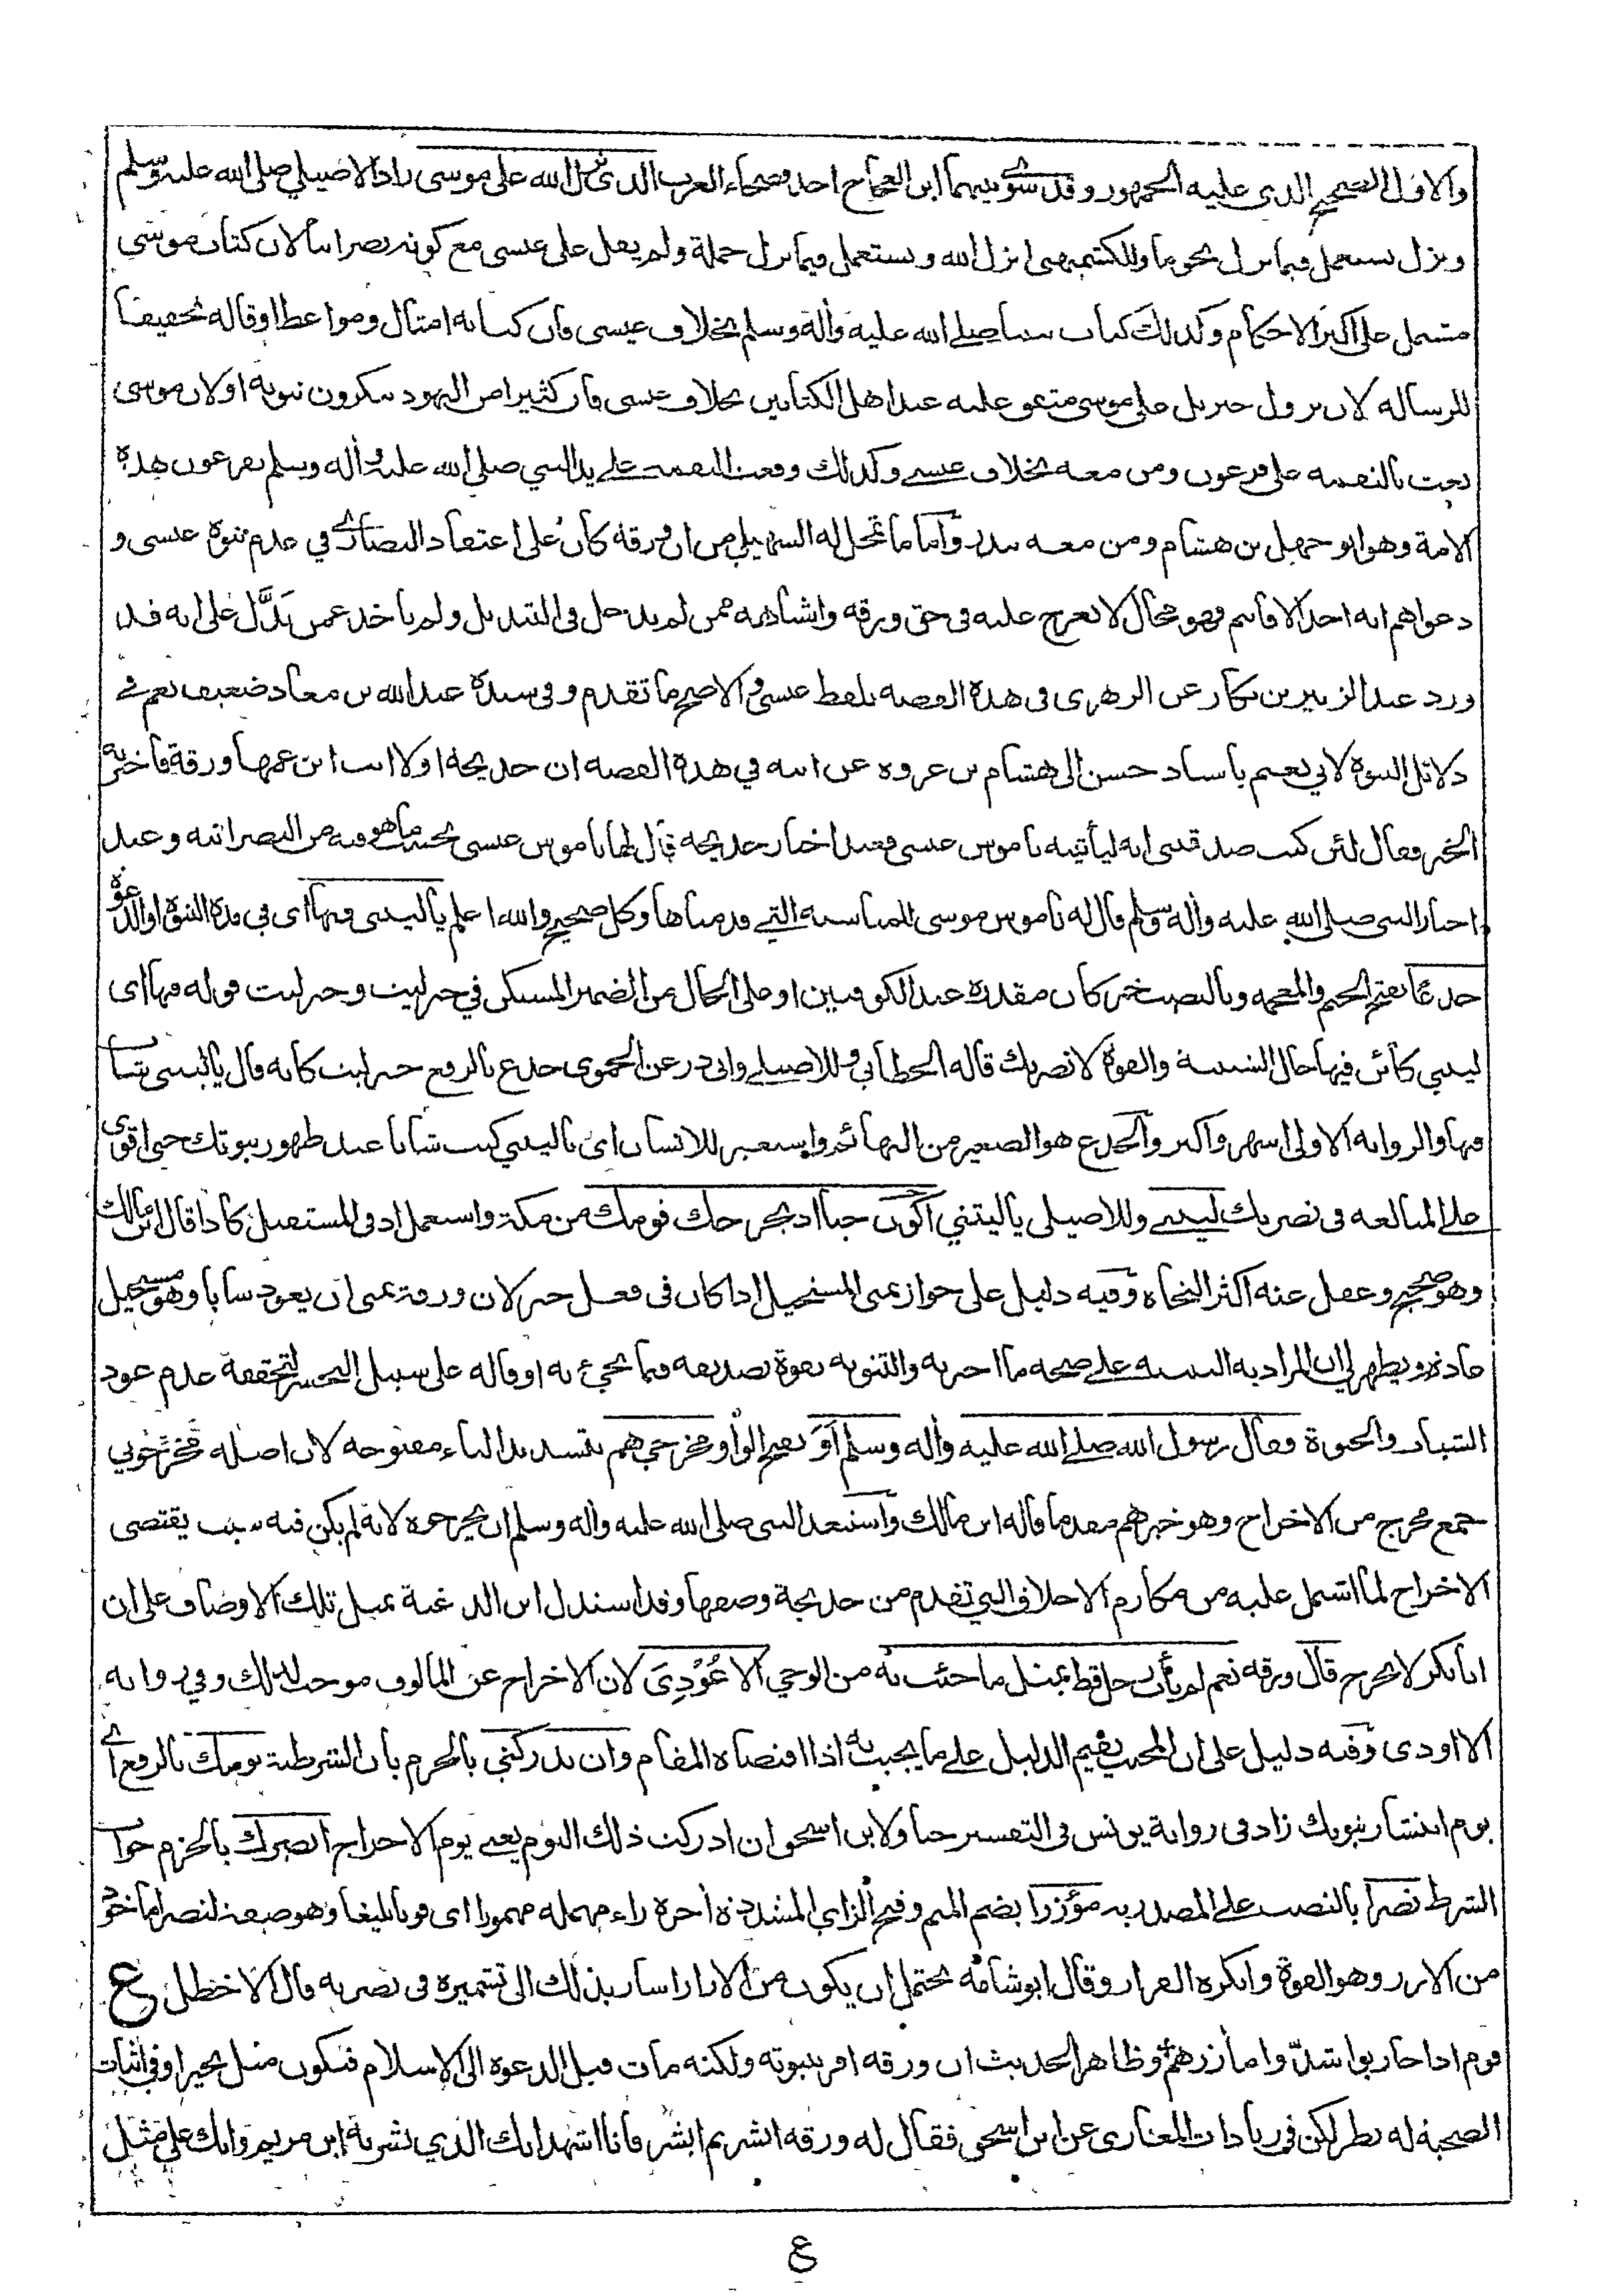 والاول الصحيح الذي عليه الجمهور وقد سوى بينهما ابن العجاج احد فصحاء العرب الذي نزل الله على موسى زاد الاصيلي صلى الله عليه وسلم
ونزل يستعمل فيما نزل نجوما وللكشميهني انزل الله ويستعمل فيما نزل جملة ولم يقل على عيسى مع كونه نصرانيا لان كتاب موسى
مشتمل على اكثر الاحكام وكذلك كتاب نبينا صلى الله عليه وآله وسلم بخلاف عيسى فان كتابه امثال ومواعظ او قاله تحقيقا
للرسالة لان نزول جبريل على موسى متفق عليه عند اهل الكتابين بخلاف عيسى فان كثيرا من اليهود ينكرون نبوته او لان موسى
بعث بالنقمة على فرعون ومن معه بخلاف عيسى وكذلك وقعت النقمة على يد النبي صلى الله عليه وآله وسلم بفرعون هذه
الامة وهو ابو جهل بن هشام ومن معه ببدر واما ما تمحل له السهيلي من ان ورقة كان على اعتقاد النصارى في عدم نبوة عيسى و
دعواهم انه احد الاقانيم فهو محال لا يعرج عليه في حق ورقة واشباهه ممن لم يدخل في التبديل ولم ياخذ عمن بدّل على انه قد
ورد عند الزبير بن بكار عن الزهري في هذه القصة بلفظ عيسى والاصح ما تقدم وفي سنده عبدالله بن معاذ ضعيف نعم في
دلائل النبوة لابي نعيم باسناد حسن الى هشام بن عروة عن ابيه في هذه القصة ان خديجة اولا اتت ابن عمها ورقة فاخبرته
الخبر فقال لئن كنت صدقتني انه ليأتيه ناموس عيسى فعند اخبار خديجة قال لها ناموس عيسى بحسب ما هو فيه من النصرانية وعند
اخبار النبي صلى الله عليه وآله وسلم قال له ناموس موسى للمناسبة التي قدمناها وكل صحيح والله اعلم ياليتني فيها اى في مدة النبوة او الدعوة
جذعا بفتح الجيم والمعجمة وبالنصب خبر كان مقدرة عند الكوفيين او على الحال من الضمير المستكن في خبر ليت وخبر ليت قوله فيها اى
ليتني كائن فيها حال الشبيبة والقوة لانصرك قاله الخطابي وللاصيلي وابى ذر عن الحموى جذع بالرفع خبر ليت كانه قال ياليتني شاب
فيها والرواية الاولى اشهر واكثر والجذع هو الصغير من البهائم واستعير للانسان اى ياليتني كنت شابا عند ظهور نبوتك حتى اقوى
على المبالغة في نصرتك ليتني وللاصيلى ياليتني اكون حيا اذ يخرجك قومك من مكة واستعمل اذ في المستقبل كاذا قال ابن مالك
وهو صحيح وغفل عنه اكثر النحاة وفيه دليل على جواز تمنى المستحيل اذا كان في فعل خير لان ورقة تمنى ان يعود شابا وهو مستحيل
عادة ويظهر لي ان المراد به التنبيه على صحة ما اخبر به والتنويه بقوة تصديقه فيما يجيء به او قاله على سبيل التحسر لتحققه عدم عود
الشباب والحيوة فقال رسول الله صلى الله عليه وآله وسلم أوَ بفتح الواو مخرجي هم بتشديد الياء مفتوحة لان اصله مخرجوني
جمع مخرج من الاخراج وهو خبرهم مقدما قاله ابن مالك واستبعد النبي صلى الله عليه وآله وسلم ان يخرجوه لانه لم يكن فيه سبب يقتضى
الاخراج لما اشتمل عليه من مكارم الاخلاق التي تقدم من خديجة وصفها وقد استدل ابن الدغنة بمثل تلك الاوصاف على ان
ابابكر لا يخرج قال ورقة نعم لم يأت رجل قط بمثل ما جئت به من الوحي الا عُوْدِىَ لان الاخراج عن المألوف موجب لذلك وفي رواية
الا اوذى وفيه دليل على ان المجيب يقيم الدليل على ما يجيب به اذا اقتضاه المقام وان يدركني بالجزم بان الشرطية يومك بالرفع اي
يوم انتشار نبوتك زاد في رواية يونس في التفسير حيا ولابن اسحق ان ادركت ذلك اليوم يعني يوم الاخراج انصرك بالجزم جواب
الشرط نصرا بالنصب على المصدرية مؤزرا بضم الميم وفتح الزاي المشددة اخره راء مهملة مهموزا اى قويا بليغا وهو صفة لنصرا ماخوذ
من الازر وهو القوة وانكره القزاز وقال ابو شامة يحتمل ان يكون من الازار اشار بذلك الى تشميره في نصرته قال الاخطل ع
قوم اذا حاربوا شدّوا مآزرهم وظاهر الحديث ان ورقة اقر بنبوته ولكنه مات قبل الدعوة الى الاسلام فيكون مثل بحيرا وفي اثبات
الصحبة له نظر لكن في زيادات المغازى عن ابن اسحق فقال له ورقة ابشر ثم ابشر فانا اشهد انك الذي بشر به ابن مريم وانك على مثل
ع